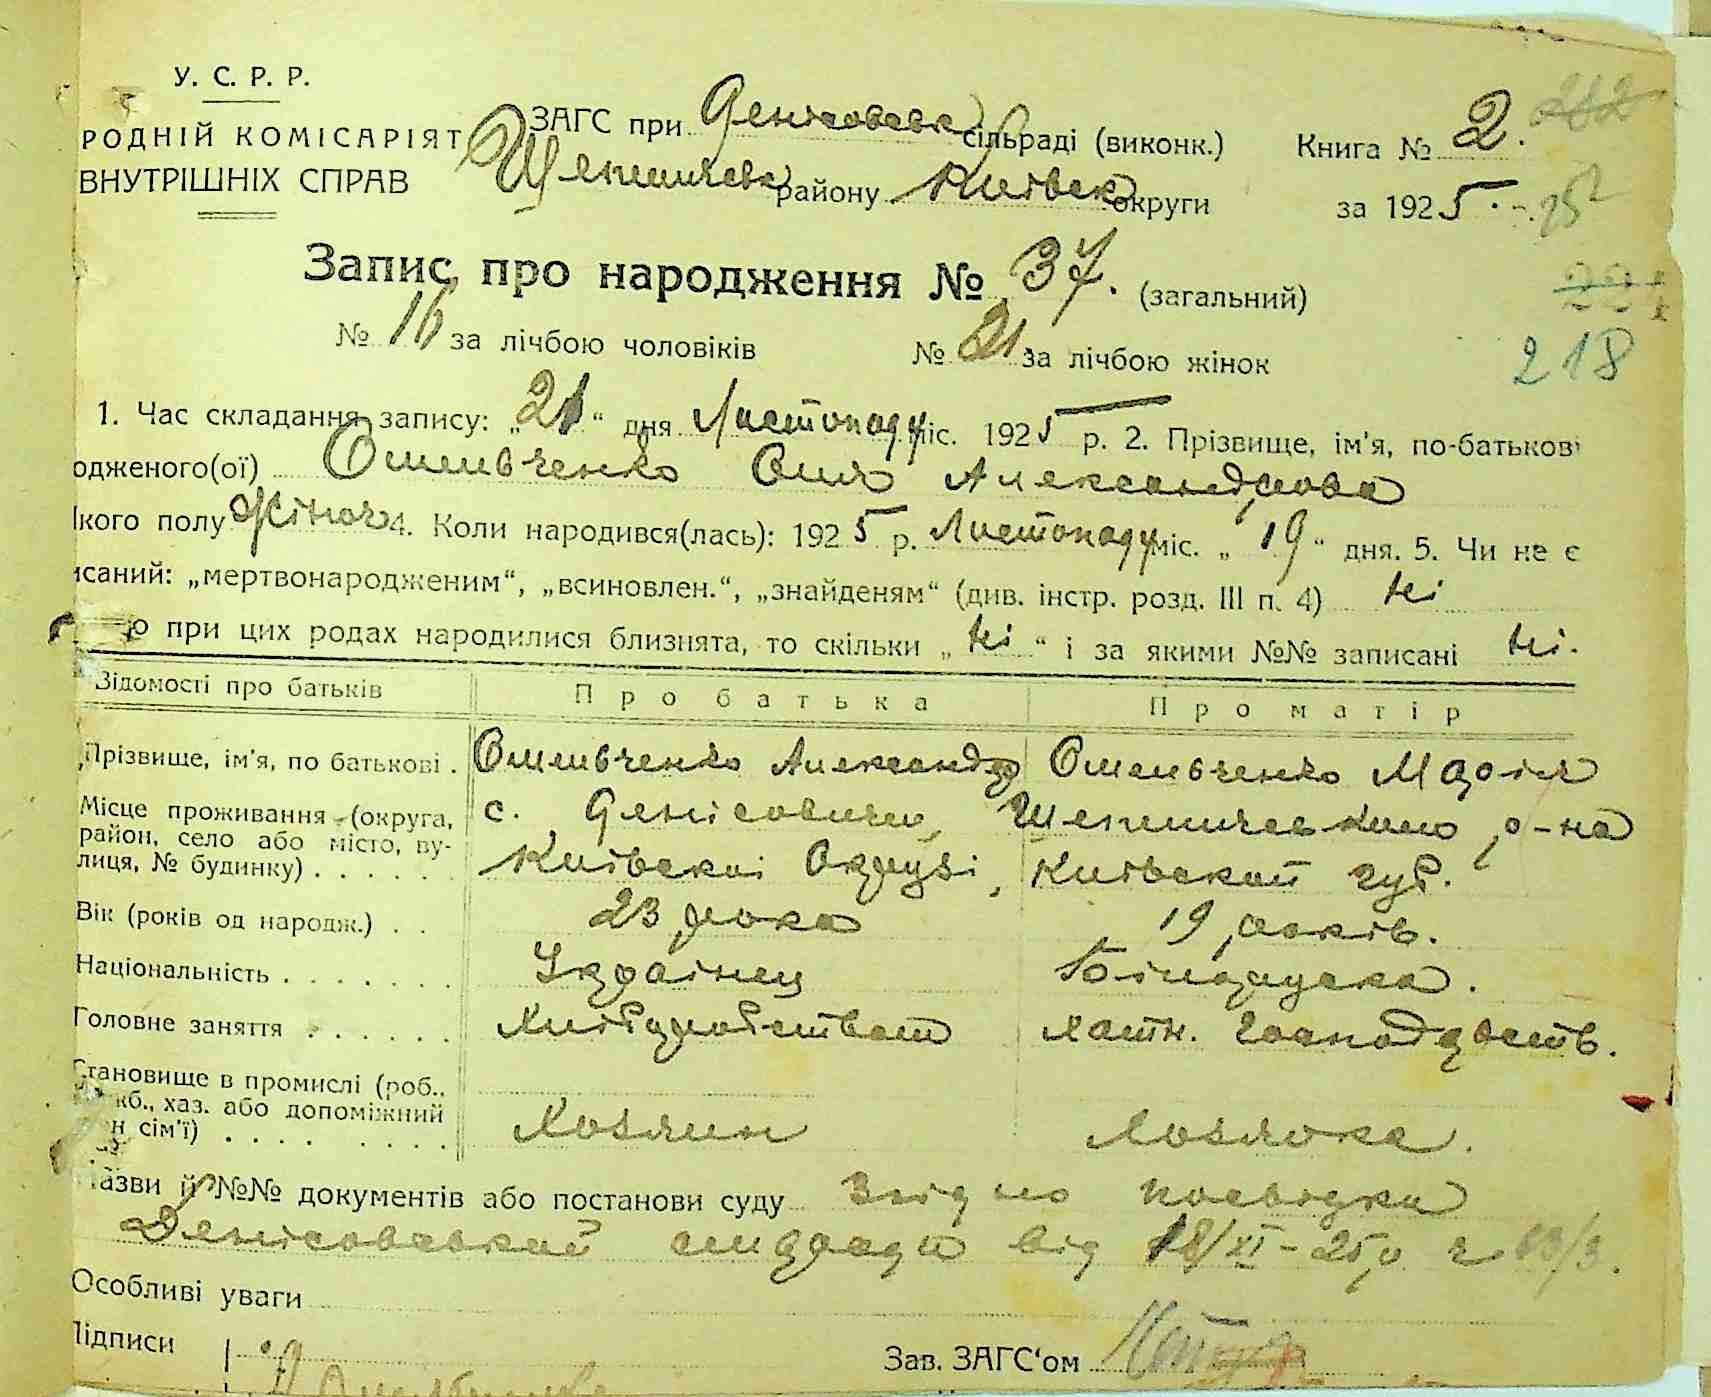 У. С. Р. Р.
РОДНІЙ КОМІСАРІЯТ
ВНУТРІШНІХ СПРАВ
ЗАГС при Денісовськ сільраді (виконк.) Книга № 2. 212
району Київськ округи за 1925. 252
Запис про народження № 37. (загальний)
№ 16 за лічбою чоловіків № 21 за лічбою жінок
218
1. Час складання запису: „21“ дня Листопаду міс. 1925 р. 2. Прізвище, ім'я, по-батькові
одженого(ої) Омельченко Олія Александрова
кого полу Жіноч 4. Коли народився(лась): 1925 р. Листопаду міс. „19“ дня. 5. Чи не є
исаний: „мертвонародженим“, „всиновлен.“, „знайденям“ (див. інстр. розд. III п. 4) ні
о при цих родах народилися близнята, то скільки „ні“ і за якими №№ записані ні.
Відомості про батьків Про батька Про матір
Прізвище, ім'я, по батькові . Омельченко Александр Омельченко Марія
Місце проживання (округа, район, село або місто, вулиця, № будинку) . . . . . . с. Денісовичи, р-на
Київскоі Округі, Київской губ.
Вік (років од народж.) . . 23 рока 19 років.
Національність . . . . . . . Українец Білоруска.
Головне заняття . . . . . . Хліборобством хатн. господарств.
Становище в промислі (роб.,
кб., хаз. або допоміжний
н сім'ї) . . . . . . . . Хозяин Хозяюка.
Назви й №№ документів або постанови суду Згідно посвідки
Денісовській сидради від 18/XI-25р ч 63/3.
Особливі уваги
Підписи Зав. ЗАГС'ом